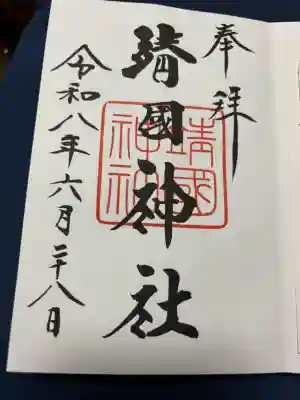 奉拝
靖國神社
靖國
神社
令和八年六月二十八日